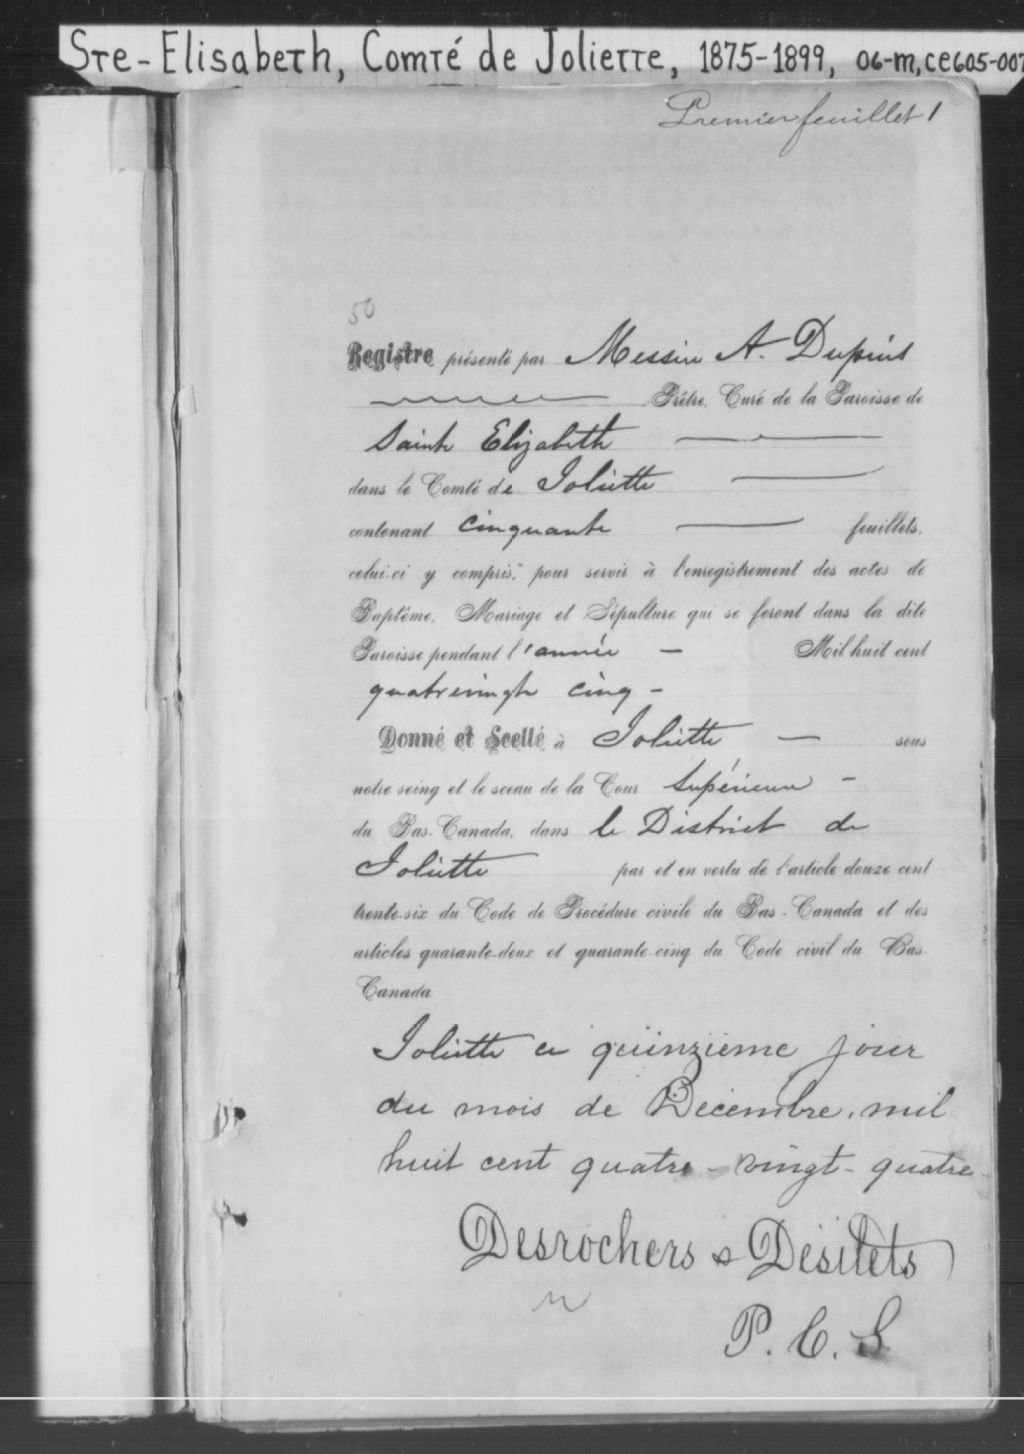 Ste-Elisabeth, Comté de Joliette, 1875-1899, 06-M, CE605-007
Premier feuillet 1
50
Registre présenté par Messire A. Dupuis
Prêtre, Curé de la Paroisse de
Sainte Elizabeth
dans le Comté de Joliette
contenant Cinquante feuillets,
celui-ci y compris, pour servir à l'enregistrement des actes de
Baptême, Mariage et Sépulture qui se feront dans la dite
Paroisse pendant l'année — Mil huit cent
quatrevingt cinq -
Donné et Scellé à Joliette — sous
notre seing et le sceau de la Cour Supérieure -
du Bas-Canada, dans le District de
Joliette par et en vertu de l'article douze cent
trente-six du Code de Procédure civile du Bas-Canada et des
articles quarante-deux et quarante-cinq du Code civil du Bas-
Canada
Joliette ce quinzième jour
du mois de Décembre, mil
huit cent quatre-vingt-quatre
Desrochers & Désilets
P. C. S.